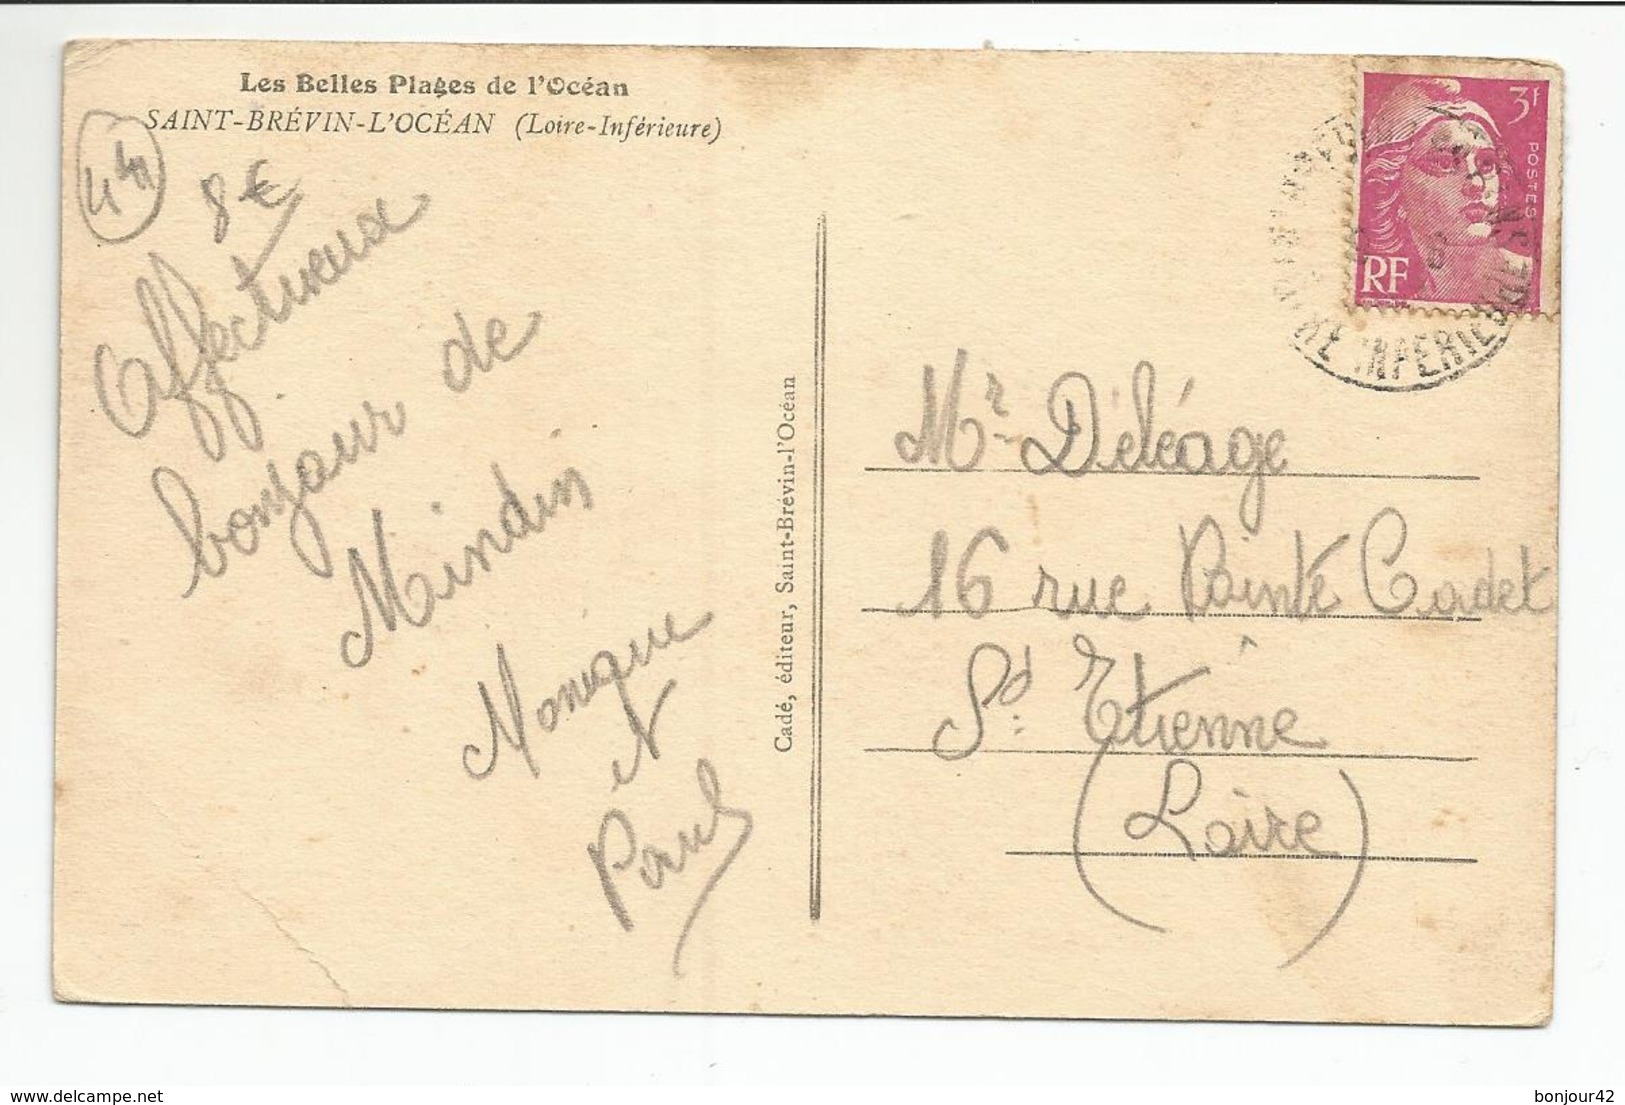 Les Belles Plages de l'Océan
SAINT-BRÉVIN-L'OCÉAN (Loire-Inférieure)
44
8€
Affectueux
bonjour de
Mindin
Monique
et
Paul
Cadé, éditeur, Saint-Brévin-l'Océan
3f
POSTES
RF
INFERIEURE
Mr Deléage
16 rue Pointe Cadet
St Etienne
(Loire)
delcampe.net
bonjour42